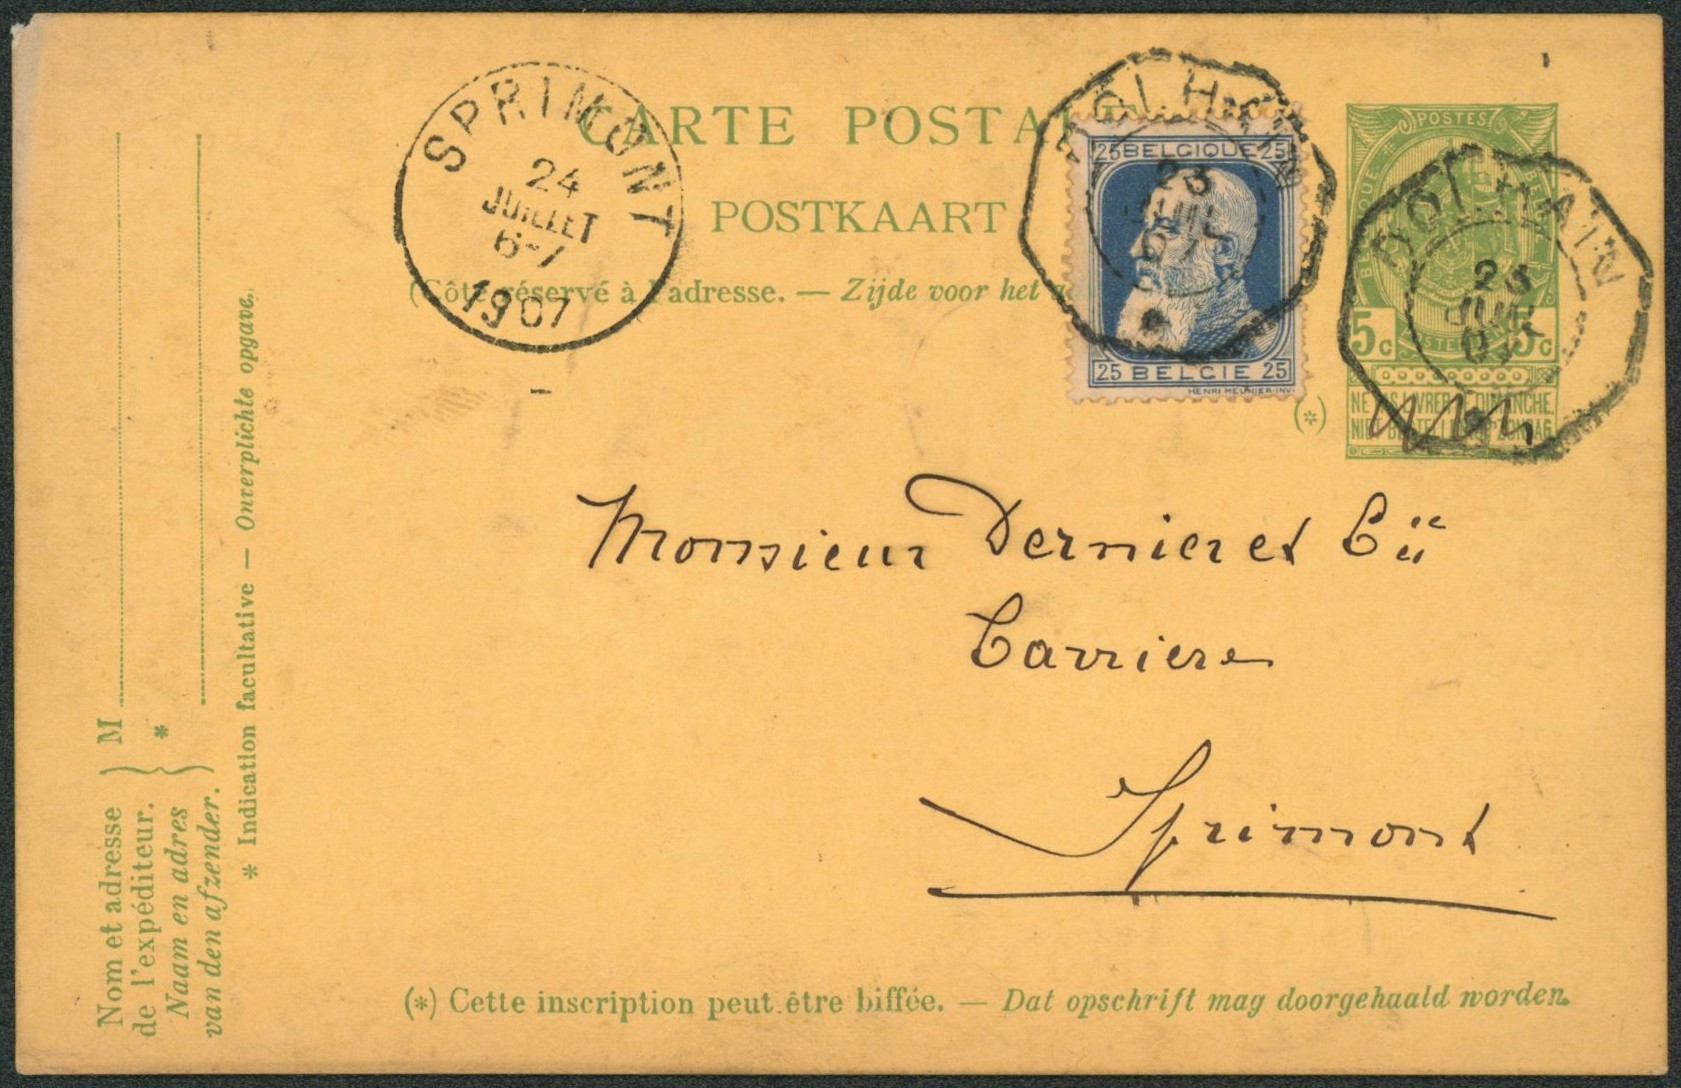 CARTE POSTA
POSTKAART
(Côté réservé à l'adresse. — Zijde voor het
SPRIMONT
24
JUILLET
6-7
1907
DOLHAIN
23
JUIL
25 BELGIQUE 25
25 BELGIE 25
HENRI MEUNIER-INV.
DOLHAIN
JUIL
POSTES
5c 5c
NE PAS LIVRER LE DIMANCHE.
NIET BESTELLEN OP ZONDAG.
(*)
Monsieur Dernier et Cie
Carriere
Sprimont
(*) Cette inscription peut être biffée. — Dat opschrift mag doorgehaald worden.
Nom et adresse
de l'expéditeur.
Naam en adres
van den afzender.
M
*
* Indication facultative — Onverplichte opgave.